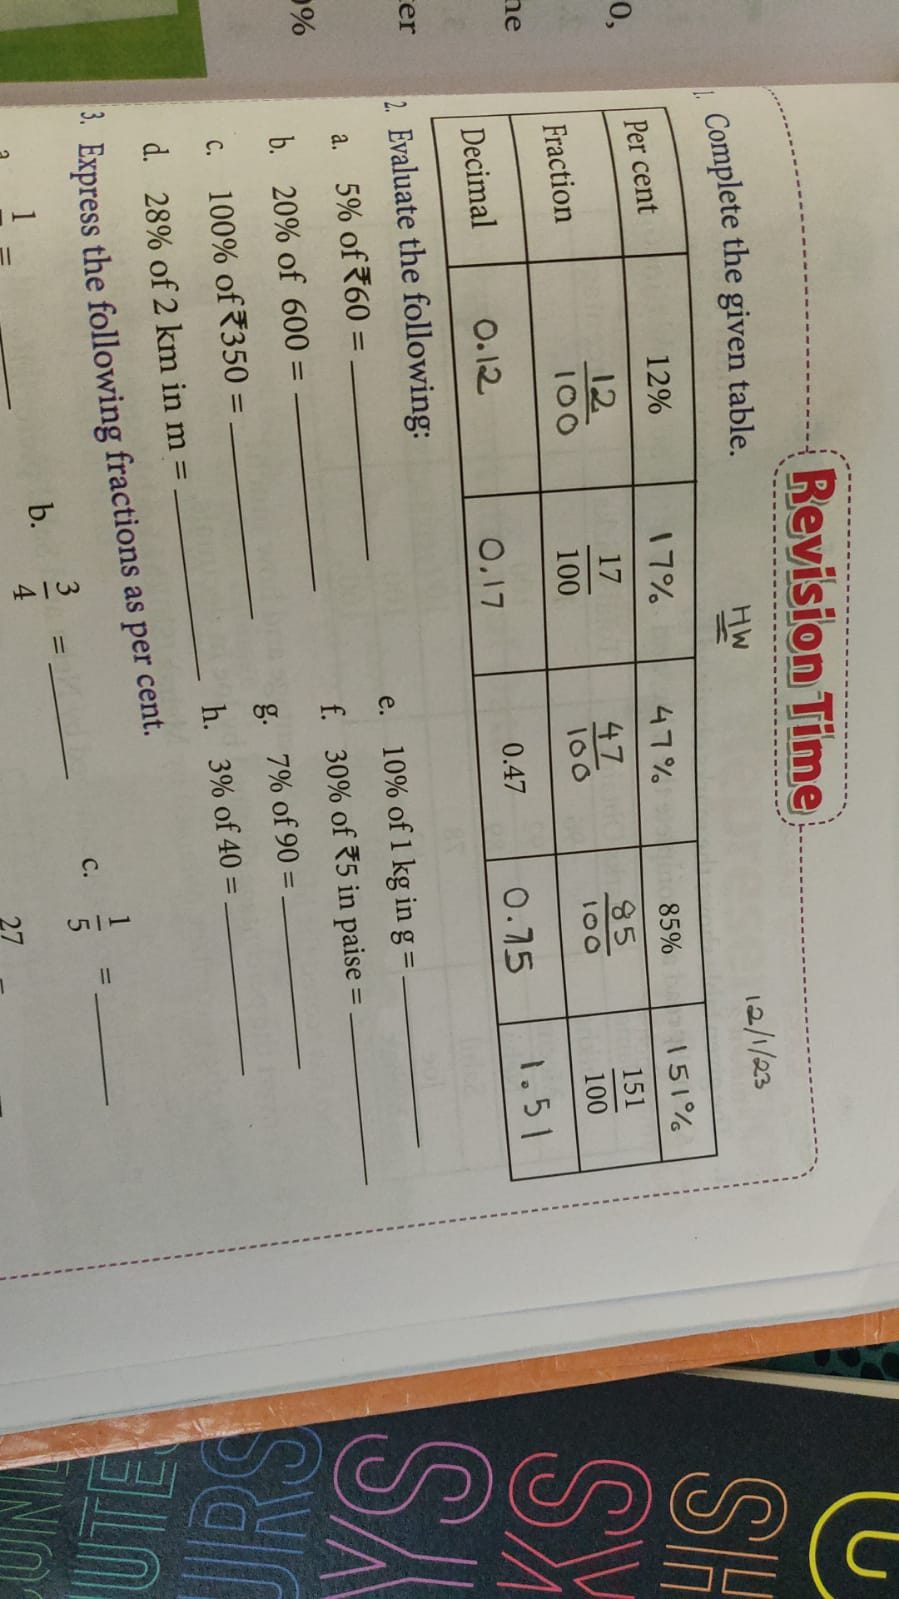 Revision Time
HW
12/1/23
1. Complete the given table.
Per cent 12% 17% 47% 85% 151%
Fraction 12/100 17/100 47/100 85/100 151/100
Decimal 0.12 0.17 0.47 0.75 1.51
2. Evaluate the following:
a. 5% of ₹60 = ____
e. 10% of 1 kg in g = ____
b. 20% of 600 = ____
f. 30% of ₹5 in paise = ____
c. 100% of ₹350 = ____
g. 7% of 90 = ____
d. 28% of 2 km in m = ____
h. 3% of 40 = ____
3. Express the following fractions as per cent.
b. 3/4 = ____
c. 1/5 = ____
27
0,